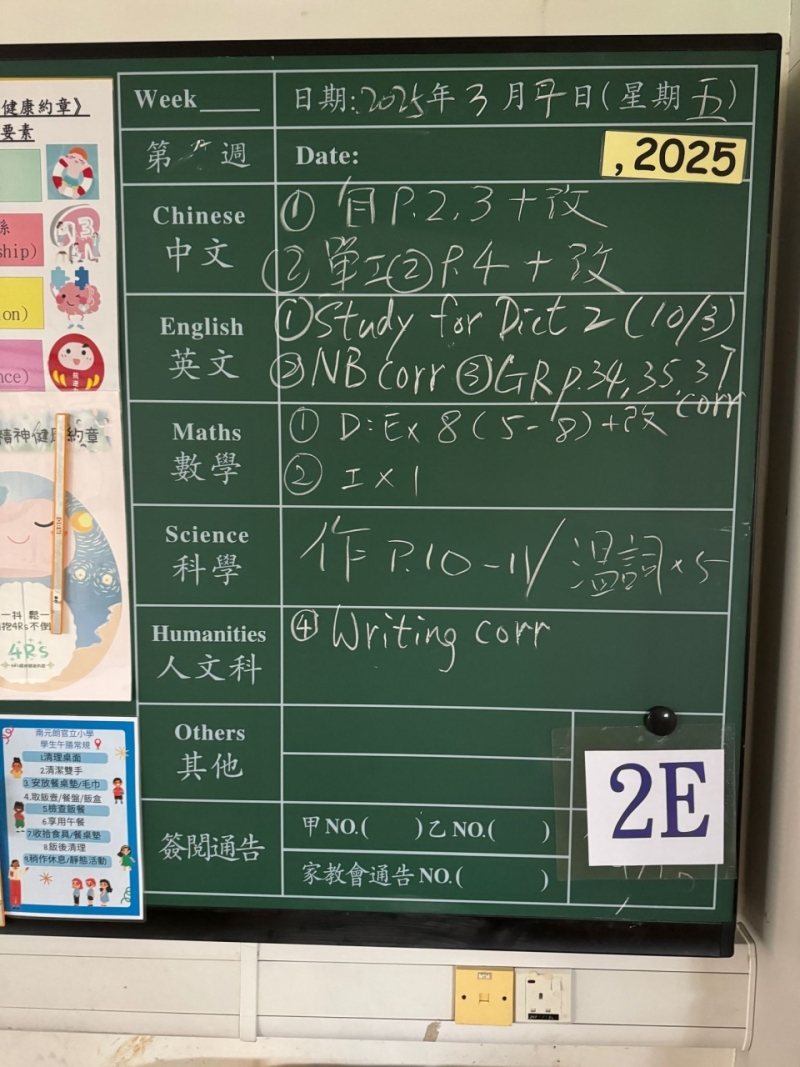 健康約章》
要素
係
ship)
on)
nce)
精神健康約章
一抖 鬆一
抱4Rs不倒
4Rs
南元朗官立小學
學生午膳常規
1.清理桌面
2.清潔雙手
3.安放餐桌墊/毛巾
4.取飯壺/餐盤/飯盒
5.檢查飯餐
6.享用午餐
7.收拾食具/餐桌墊
8.飯後清理
9.稍作休息/靜態活動
Week____ 日期:2025年3月7日(星期五)
第 週 Date: , 2025
Chinese ① 自P.2,3+改
中文 ② 單工②P.4+改
English ①Study for Dict 2 (10/3)
英文 ②NB corr ③GR p.34,35,37
corr
Maths ① D:Ex 8(5-8)+改
數學 ② I×1
Science 作 P.10-11/ 溫詞×5
科學
Humanities ④ Writing corr
人文科
Others
其他
2E
簽閱通告 甲NO.( )乙NO.( )
家教會通告NO.( )